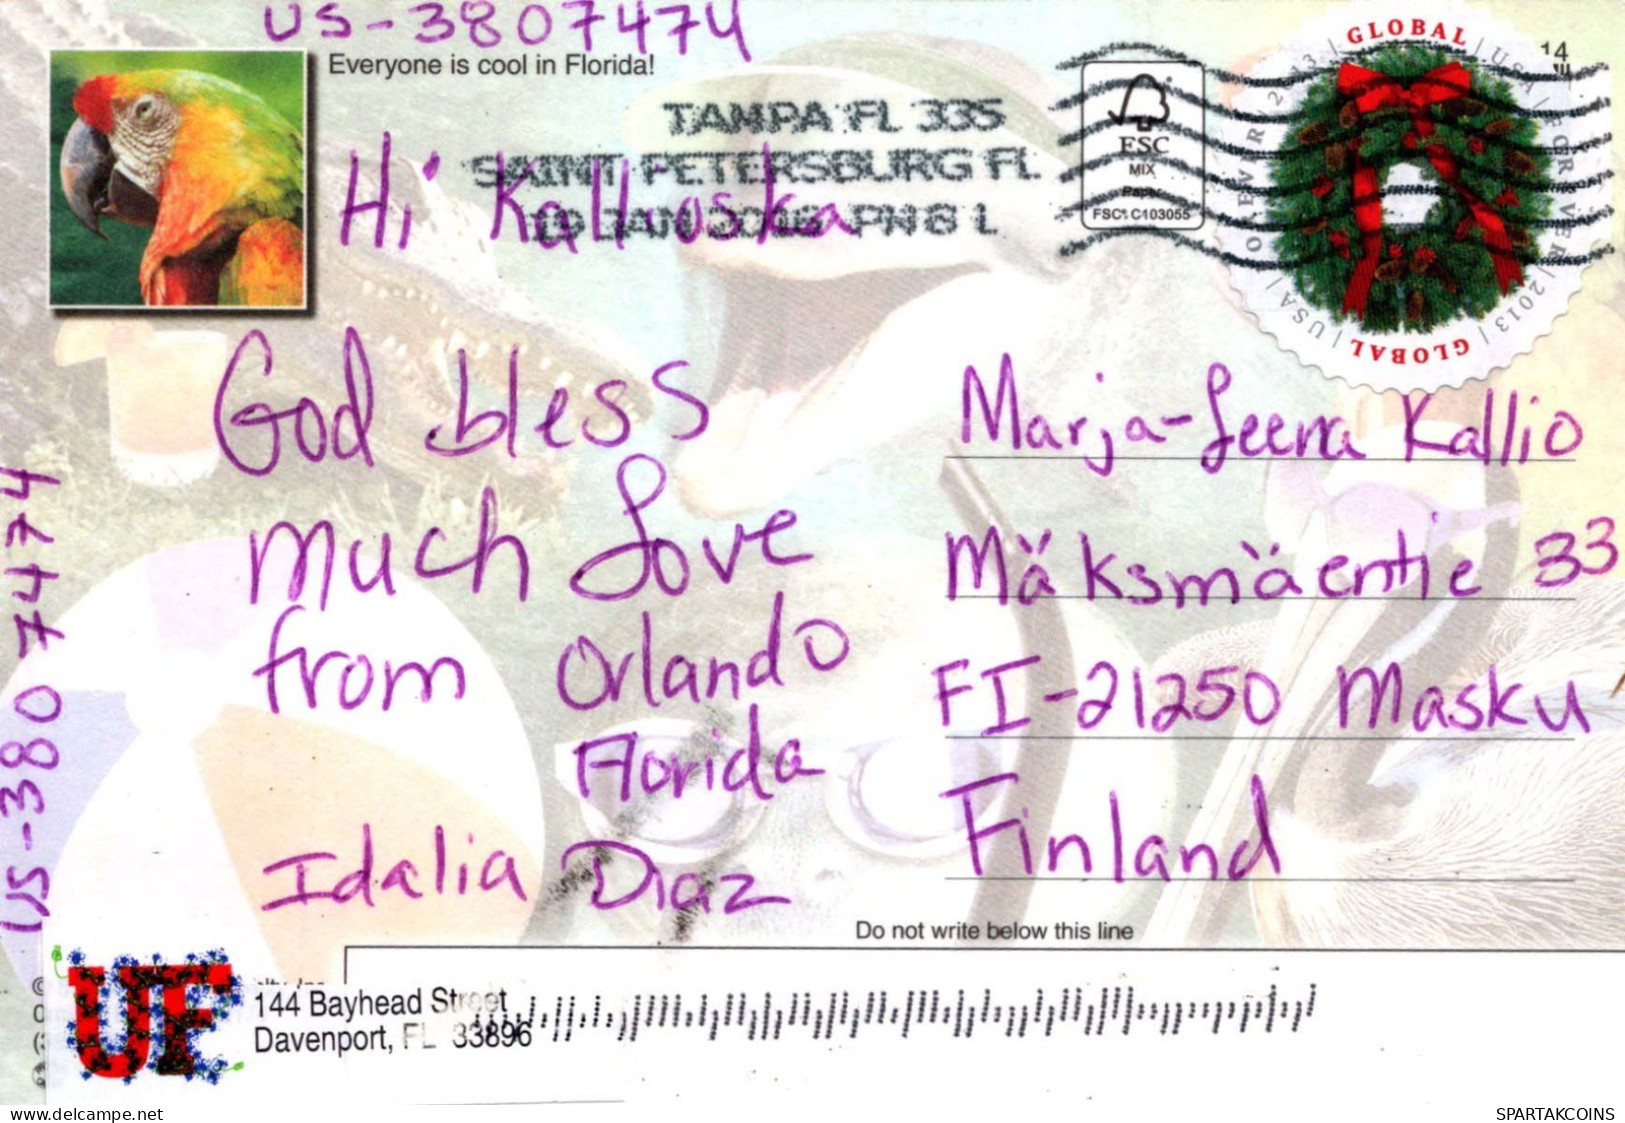 US-3807474
Everyone is cool in Florida!
TAMPA FL 335
SAINT PETERSBURG FL
JAN PM 8 L
FSC
MIX
Paper
FSC® C103055
14
GLOBAL | USA | FOREVER | 2013 | GLOBAL | USA | FOREVER 2013
Hi Kalliuska
God bless
much Love
from Orlando
Florida
Idalia Diaz
Marja-Leena Kallio
Mäksmäentie 33
FI-21250 Masku
Finland
US-3807474
Do not write below this line
UF
144 Bayhead Street
Davenport, FL 33896
www.delcampe.net
SPARTAKCOINS